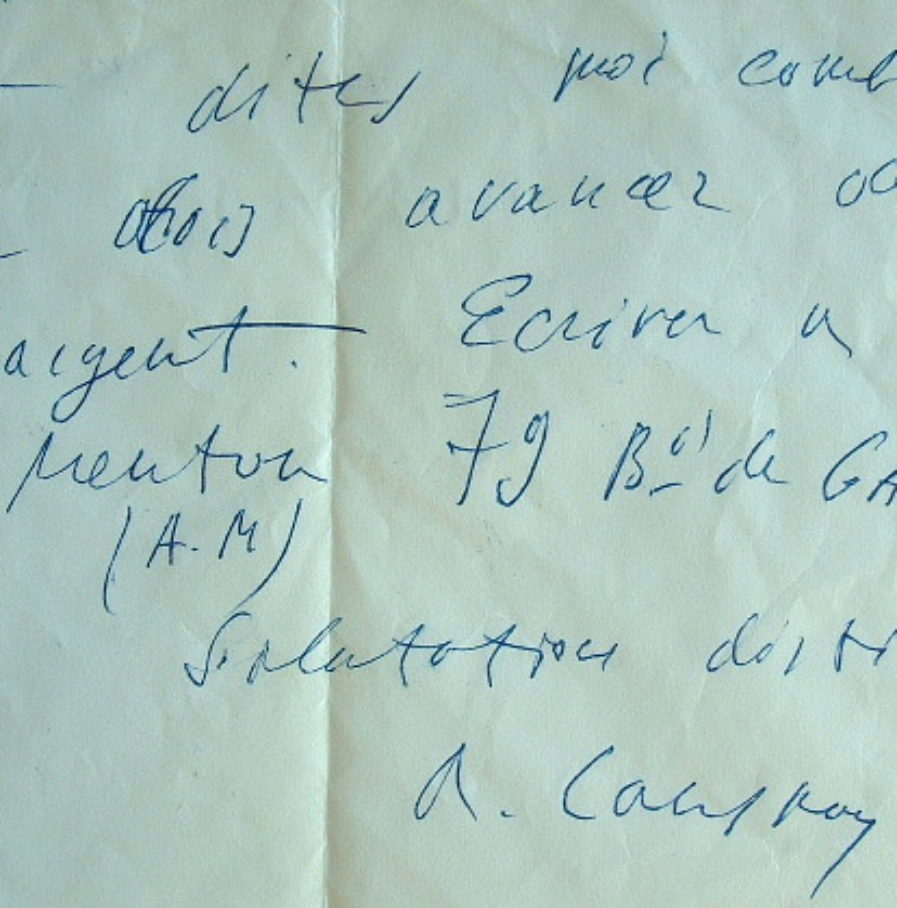 dites moi comb
dois avancer
argent. Ecrivez a
Menton 79 Bd de GA
(A.M)
Salutations disti